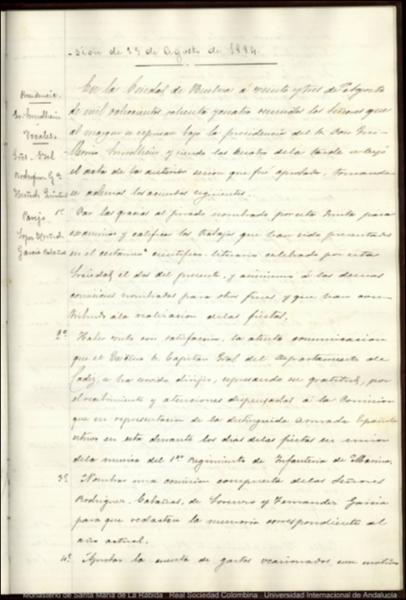 sion de 23 de Agosto de 1884.
En la Ciudad de Huelva á veinte y tres de Agosto
de mil ochocientos ochenta y cuatro reunidos los Señores que
al margen se expresan bajo la presidencia del Sr. Don Gui-
llermo Sundheim y siendo las cuatro de la tarde se leyó
el acta de la anterior sesion que fué aprobada, tomando
se además los acuerdos siguientes.
Presidencia.
Sr. Sundheim
Vocales.
Sres.
Rodriguez Gª
Parejo.
Garcia Cabañas
1º Dar las gracias al jurado nombrado por esta Junta para
examinar y calificar los trabajos que han sido presentados
en el certamen cientifico-literario celebrado por esta
Sociedad el dos del presente, y asimismo á las demas
comisiones nombradas para otros fines, y que han con-
tribuido á la realizacion de las fiestas.
2º Haber visto con satisfaccion la atenta comunicacion
que el Excmo Sr. Capitan Gral del departamento de
Cadiz, se ha servido dirigir, expresando su gratitud, por
el recibimiento y atenciones dispensadas á la Comision
que en representacion de la distinguida armada Española
estuvo en esta durante los dias de las fiestas en union
de la musica del 1er Regimiento de Infanteria de Marina.
3º Nombrar una comision compuesta de los Señores
Rodriguez, Cabañas, de Soriano y Fernandez Garcia
para que redacten la memoria correspondiente al
año actual.
4º Aprobar la cuenta de gastos ocasionados con motivo
Monasterio de Santa María de La Rábida · Real Sociedad Colombina · Universidad Internacional de Andalucía